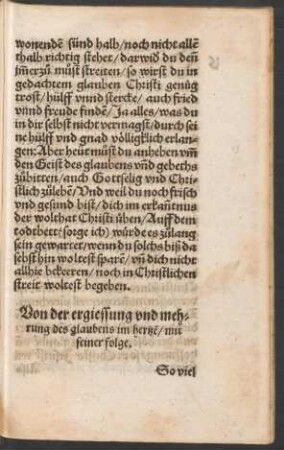 wonendē sünd halb/noch nicht allē
thalb richtig stehet/darwid du deñ
im̃erzů můst streiten/so wirst du in
gedachtem glauben Christi genůg
trost/hülff vnnd stercke/auch fried
vnnd freude findē/Ja alles/was du
in dir selbst nicht vermagst/durch sei
ne hülff vnd gnad völligklich erlan-
gen: Aber heut můst du anheben vm̃
den Geist des glaubens vñd gebeths
zůbitten/auch Gottselig vnd Chri-
stlich zůlebē/Vnd weil du noch frisch
vnd gesund bist/dich im erkañtnus
der wolthat Christi üben/Auff dem
todtbett (sorge ich) würde es zůlang
sein gewartet/wenn du solchs biß da
selbst hin woltest sparē/vñ dich nicht
allhie bekeeren/noch in Christlichen
streit woltest begeben.
Von der ergiessung vnd meh-
rung des glaubens im hertzē/mit
seiner folge.
So viel